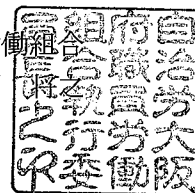 働組合
将之
自治労大阪
府職員労働
組合執行委
員長之印